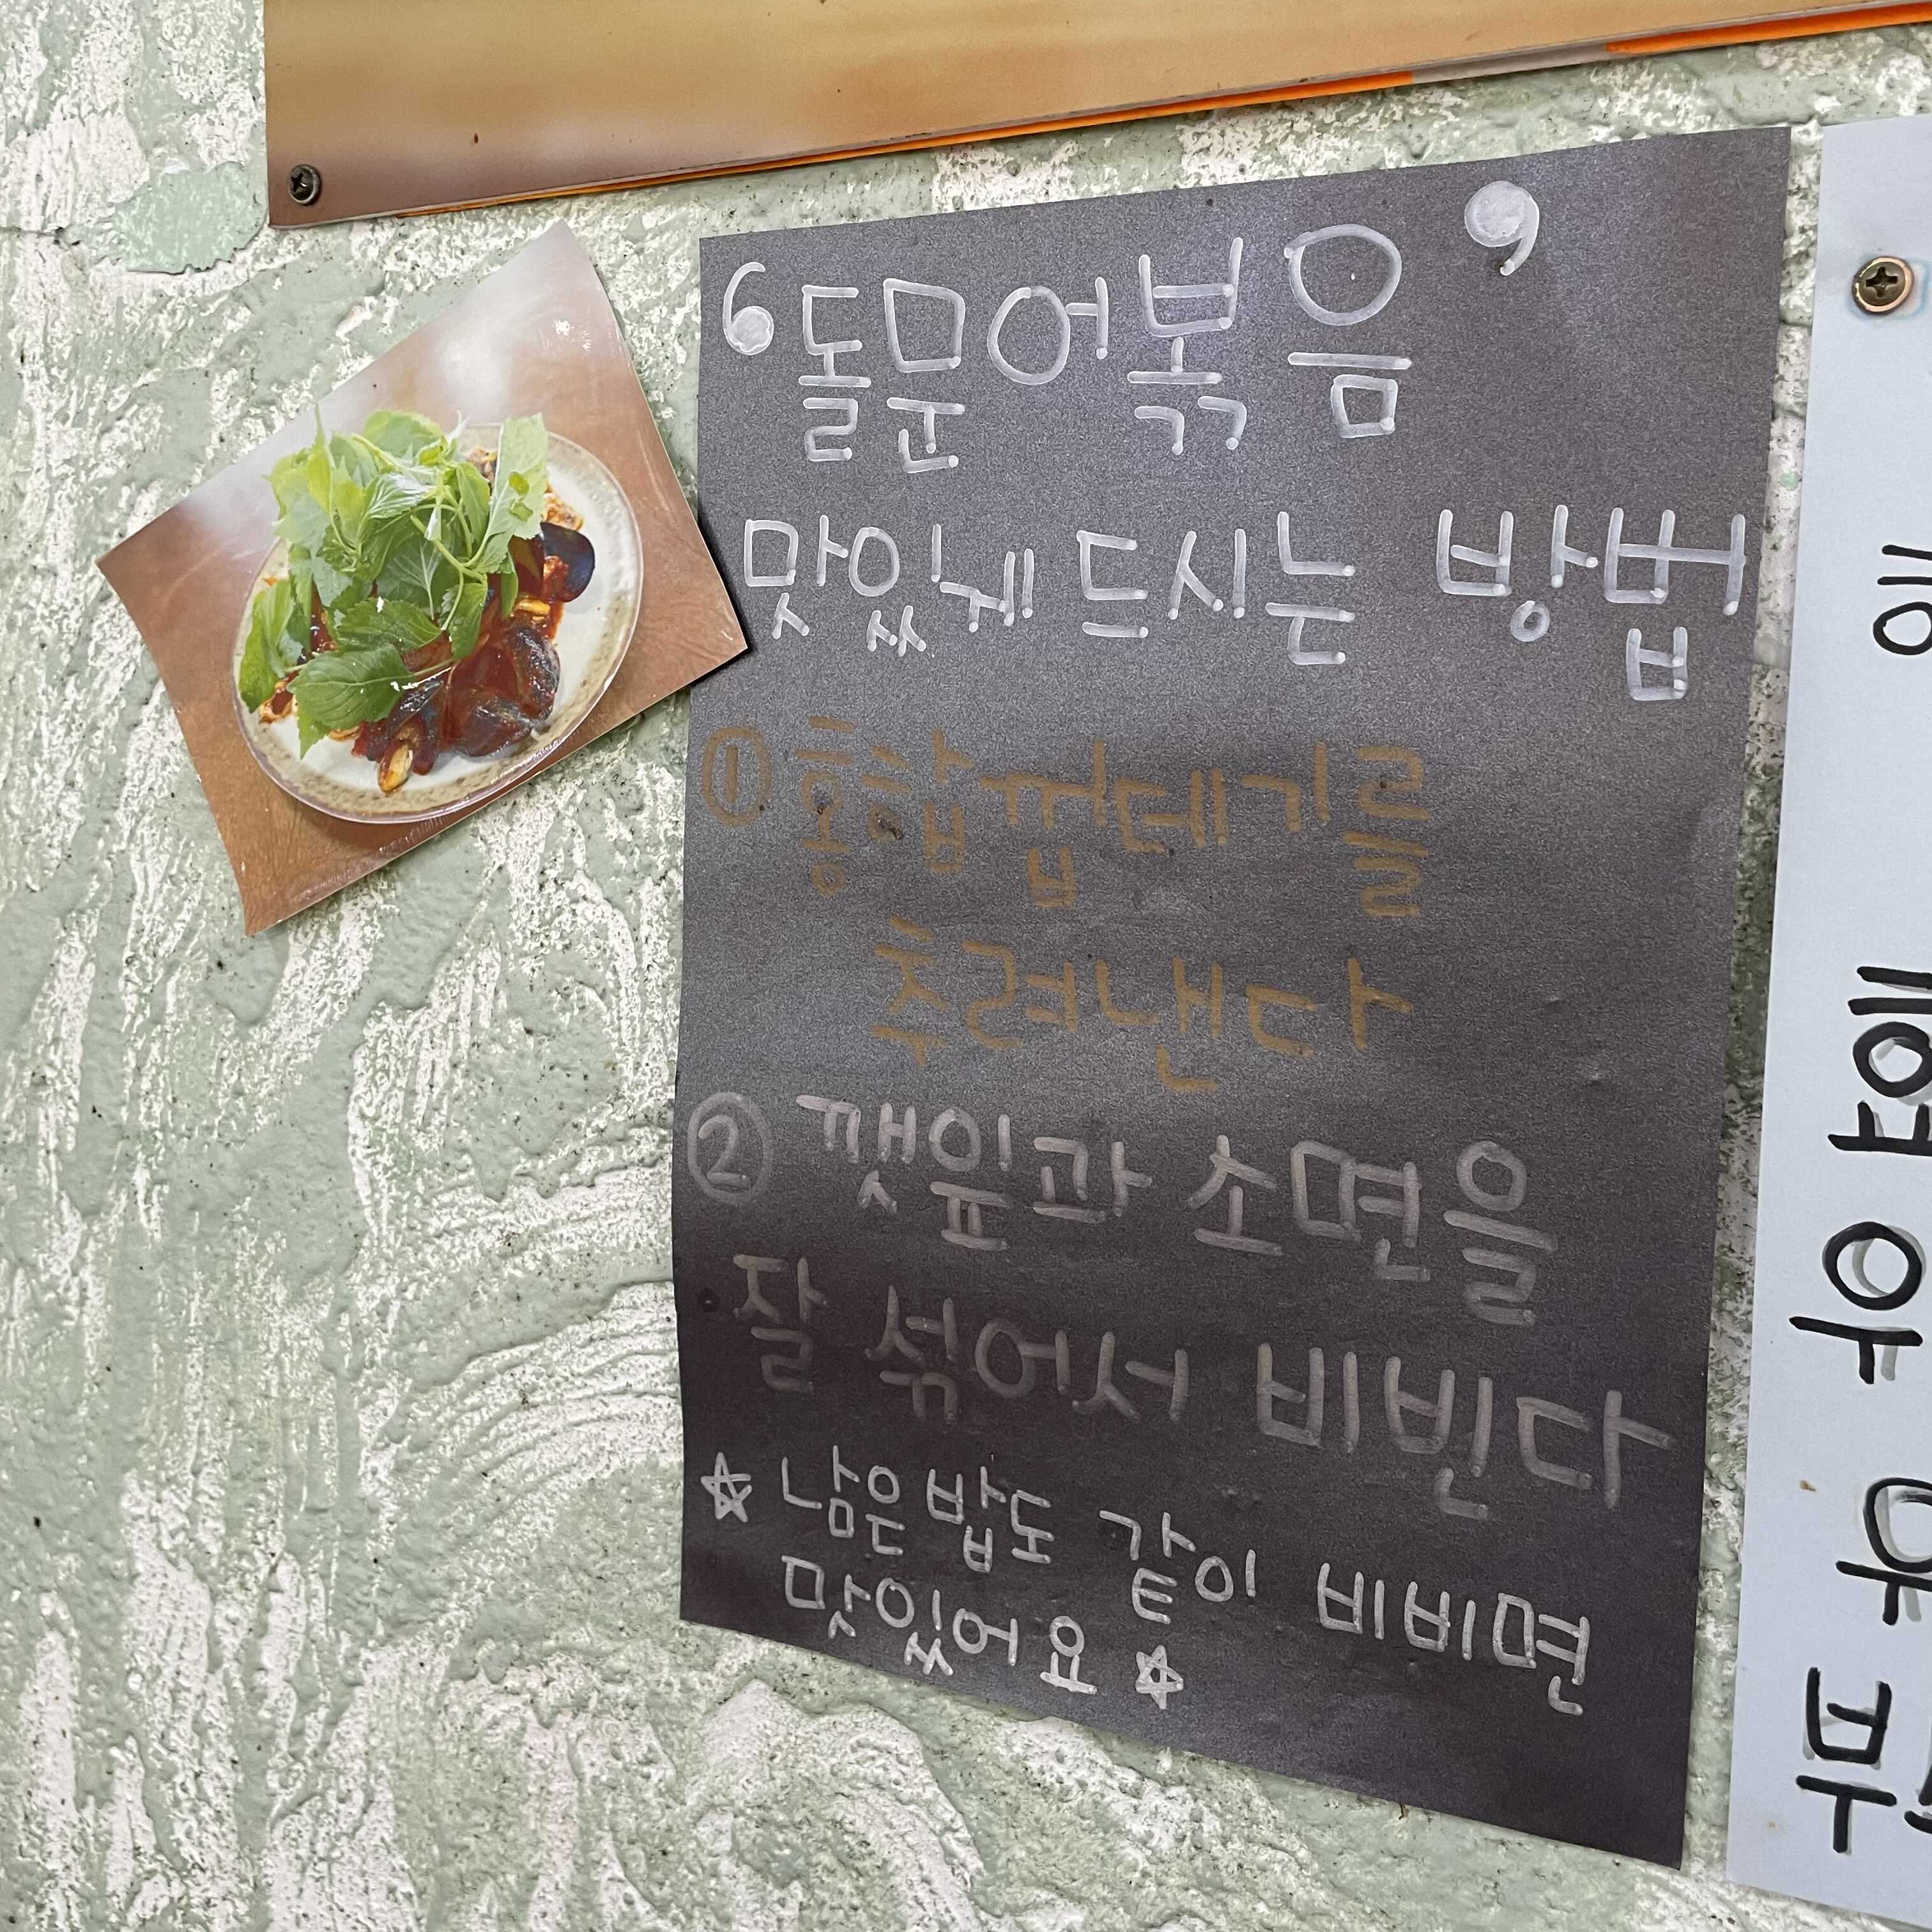 ‘돌문어볶음’
맛있게 드시는 방법
① 홍합껍데기를
추려낸다
② 깻잎과 소면을
잘 섞어서 비빈다
☆ 남은밥도 같이 비비면
맛있어요 ☆